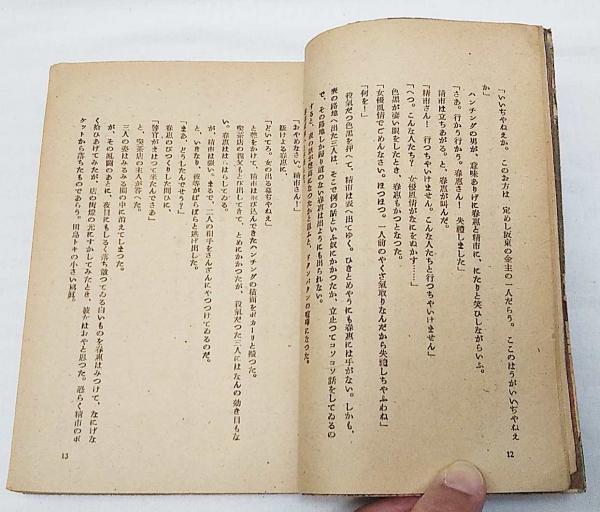 「いいぢやねえか。このお方は、定めし坂東の金主の一人だらう。ここのはうがいいぢやねえ
か」
ハンチングの男が、意味ありげに春惠と精市に、にたりと笑ひしながらいふ。
「さあ。行かう行かう。春惠さん！ 失禮しました」
精市は立ちあがる。と、春惠が叫んだ。
「精市さん！ 行つちやいけません。こんな人たちと行つちやいけません」
「へつ。こんな人たち！ 女優風情がなにをぬかす……」
色黑が凄い眼をしたとき、春惠もかつとなつた。
「女優風情でごめんなさい。ほつほつ。一人前のやくざ氣取りなんだから失禮しちやふわね」
「何を！」
殺氣だつ色黑を押へて、精市は表へ出てゆく。ひきとめやうにも春惠には手がない。しかも、
表の路地へ出た三人は、そこで例の話といふ奴にかかつたか、立止つてコソコソ話をしてゐるの
で、その路地しか歸り道のない春惠は出ようにも出られない。
12
「おやめなさい、精市さん！」
駈けよる春惠に、
「どいてろ。女の出る幕ぢやねえ」
と聲をかけて、精市は飛び込んできたハンチングの橫面をポカーリと撲つた。
喫茶店の親父もとび出してきて、とめにかかつたが、殺氣だつた三人にはなんの効き目もな
い。春惠ははらはらしてゐる。
が、精市は强い。まるで、二人の相手をさんざんにやつつけてゐるのだ。
と、いきなり、彼等がばらばらと逃げ出した。
「まあ、どうしたんでせう」
春惠のびつくりした問ひに、
「警官がまはつて來たんでさあ」
と、喫茶店の主人が答へた。
三人の姿はみるみる闇の中に消えてしまつた。
が、その風圖のあとに、夜目にもしるく落ち散つてゐる白いものを春惠はみつけて、なにげな
く拾ひあげてみたが、店の街燈の光にすかしてみたとき、彼女はおやと思つた。恐らく精市のポ
ケットから落ちたものであらう。田島トキの小さい寫眞。
13